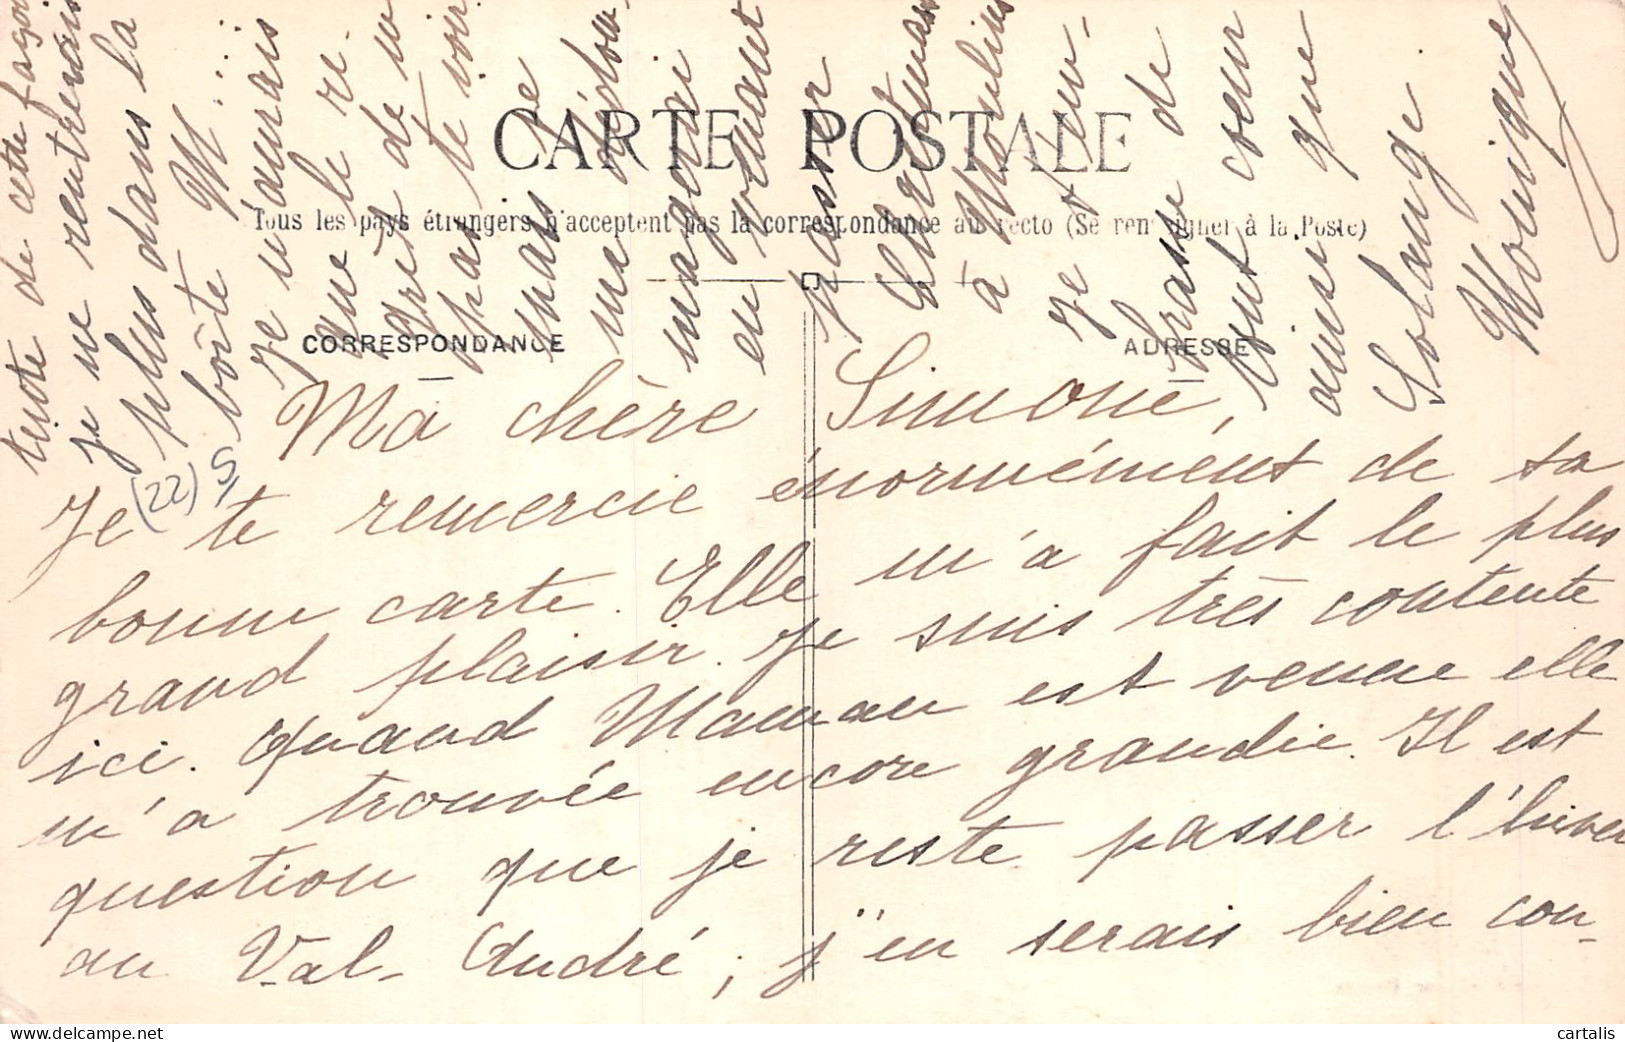 CARTE POSTALE
Tous les pays étrangers n'acceptent pas la correspondance au recto (Se renseigner à la Poste)
CORRESPONDANCE
ADRESSE
Ma chère Simone,
Je te remercie énormément de ta
bonne carte. Elle m'a fait le plus
grand plaisir. Je suis très contente
ici. Quand Maman est venue elle
m'a trouvée encore grandie. Il est
question que je reste passer l'hiver
au Val-André ; j'en serais bien con-
tente de cette façon
je ne rentrerais
plus dans la
boîte M....
Je n'aurais
que le re-
gret de ne
pas te voir
mais je
me dédom-
magerai
en venant
passer
Christmas
à Moulins
Je t'em-
brasse de
tout cœur
ainsi que
Solange
Monique
(22) S
cartalis